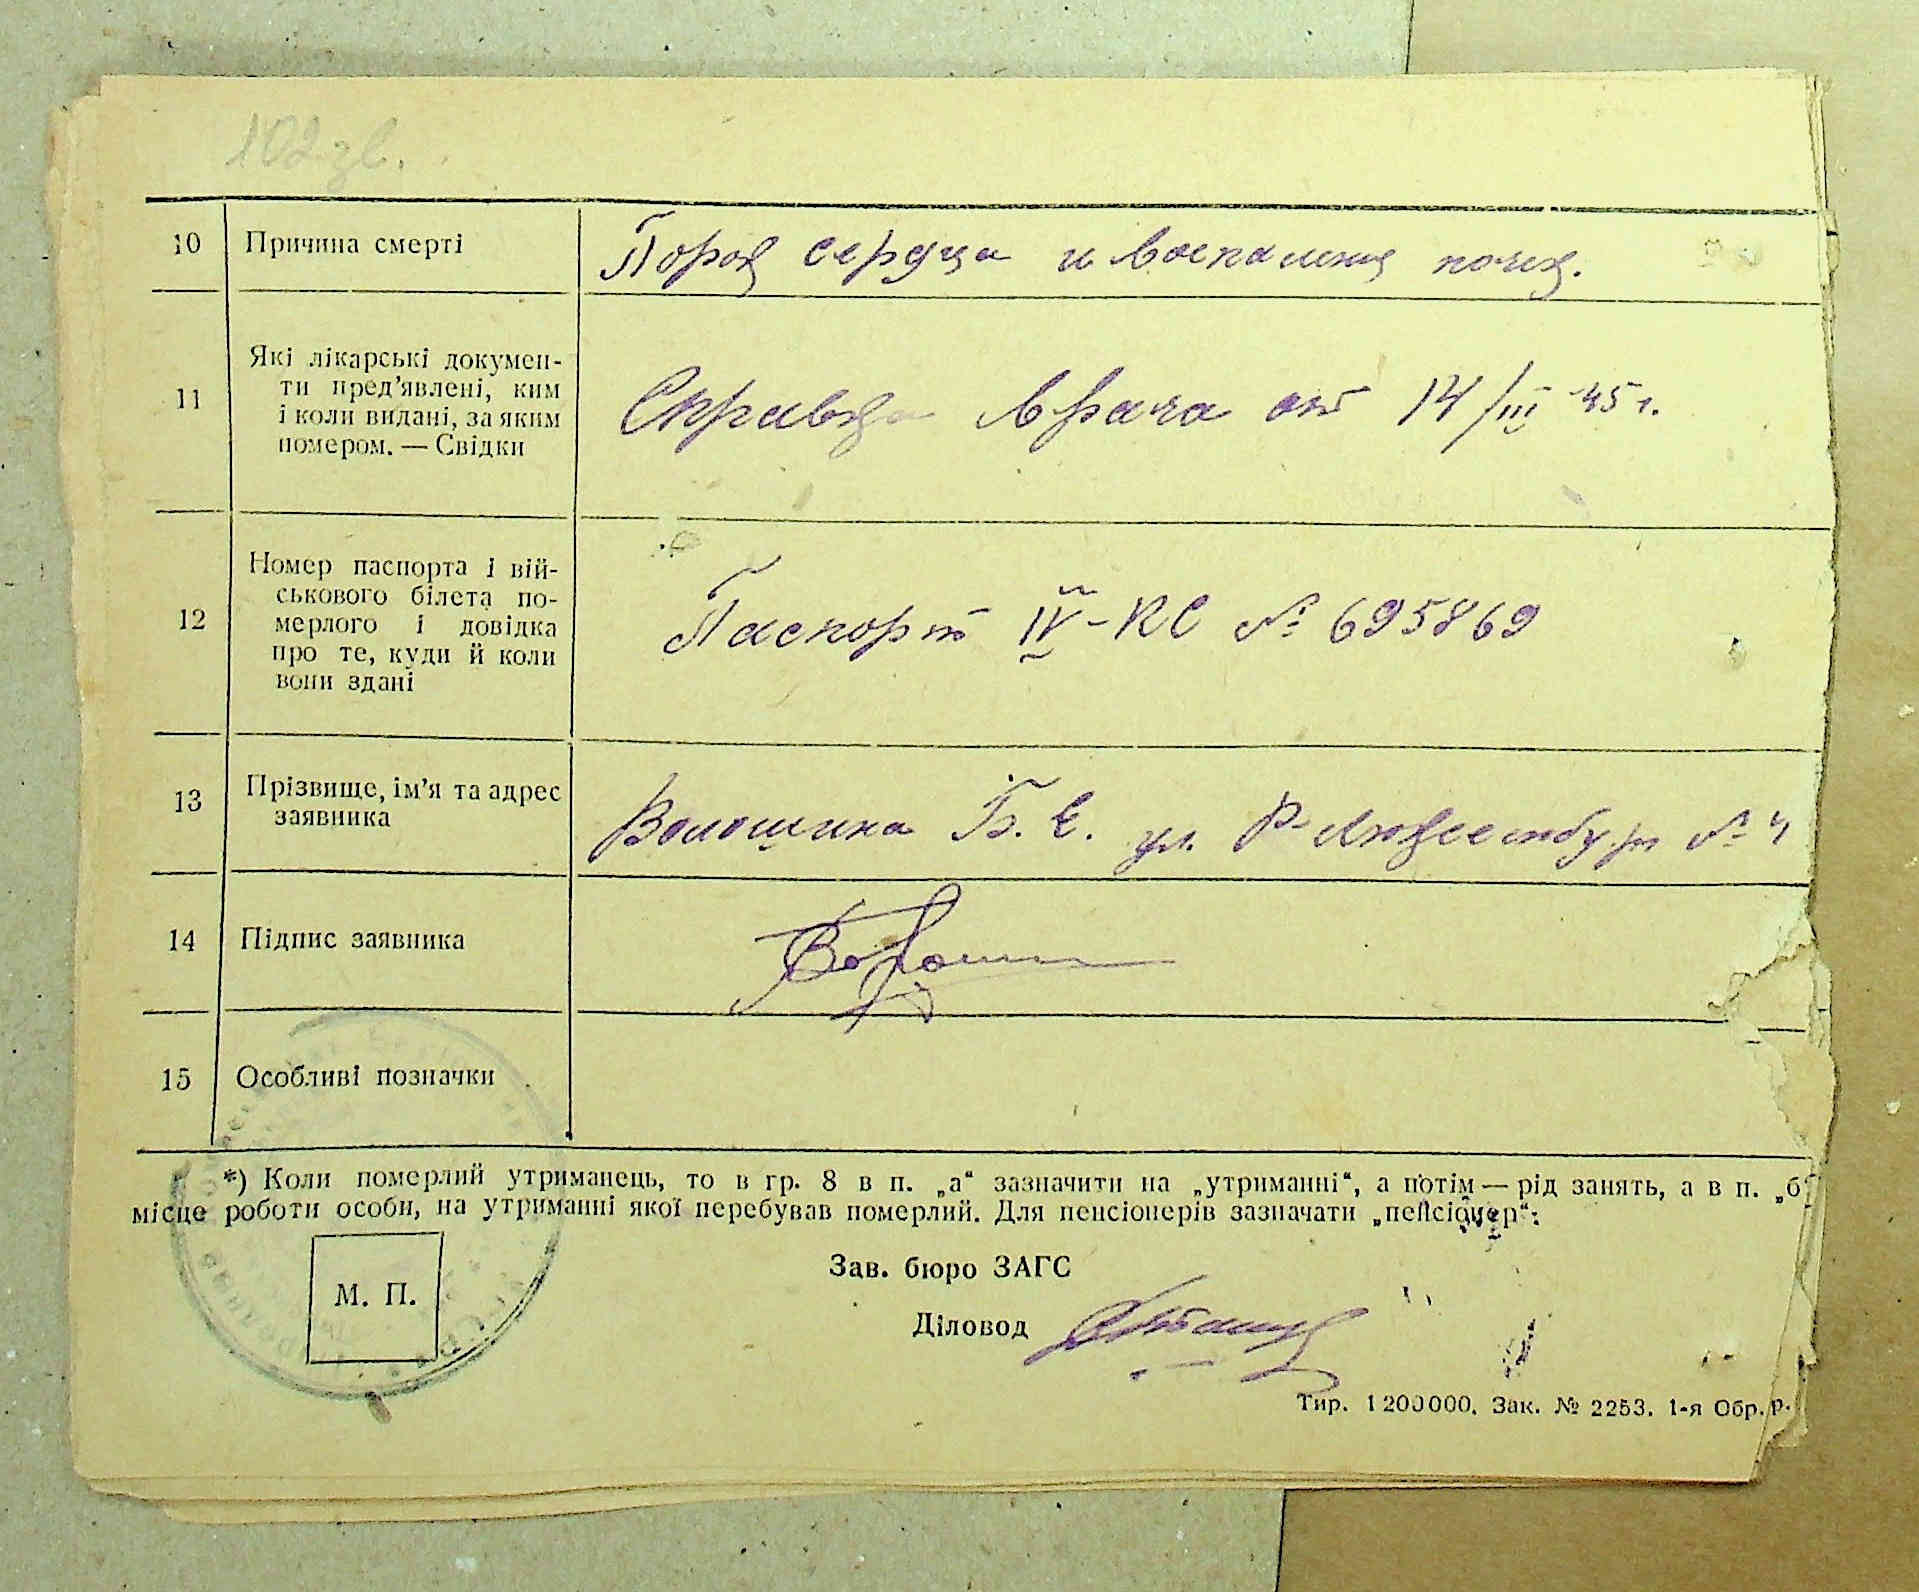 102 зв.
10 Причина смерті Порок сердца и воспаление почек.
11 Які лікарські докумен-
ти пред'явлені, ким
і коли видані, за яким
номером. — Свідки
Справка врача от 14/III 45 г.
12 Номер паспорта і вій-
ськового білета по-
мерлого і довідка
про те, куди й коли
вони здані
Паспорт IV-КС № 695869
13 Прізвище, ім'я та адрес
заявника
Волошина Б. Е. ул. Р-Люксембург № 4
14 Підпис заявника
15 Особливі позначки
*) Коли померлий утриманець, то в гр. 8 в п. „а“ зазначити на „утриманні“, а потім — рід занять, а в п. „б“
місце роботи особи, на утриманні якої перебував померлий. Для пенсіонерів зазначати „пенсіонер“.
М. П.
Зав. бюро ЗАГС
Діловод
Тир. 1200000. Зак. № 2253. 1-я Обр.